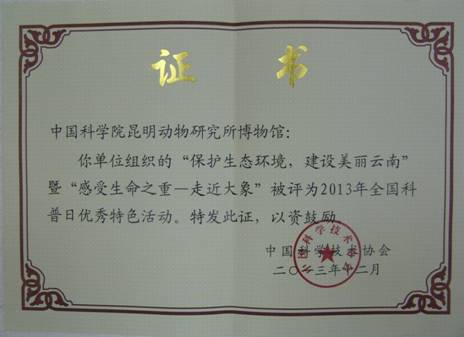 证 书
中国科学院昆明动物研究所博物馆：
你单位组织的“保护生态环境，建设美丽云南”
暨“感受生命之重—走近大象”被评为2013年全国科
普日优秀特色活动。特发此证，以资鼓励。
中国科学技术协会
二〇一三年十二月